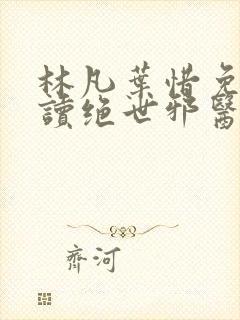 林凡葉惜免
讀絕世邪醫
齊河